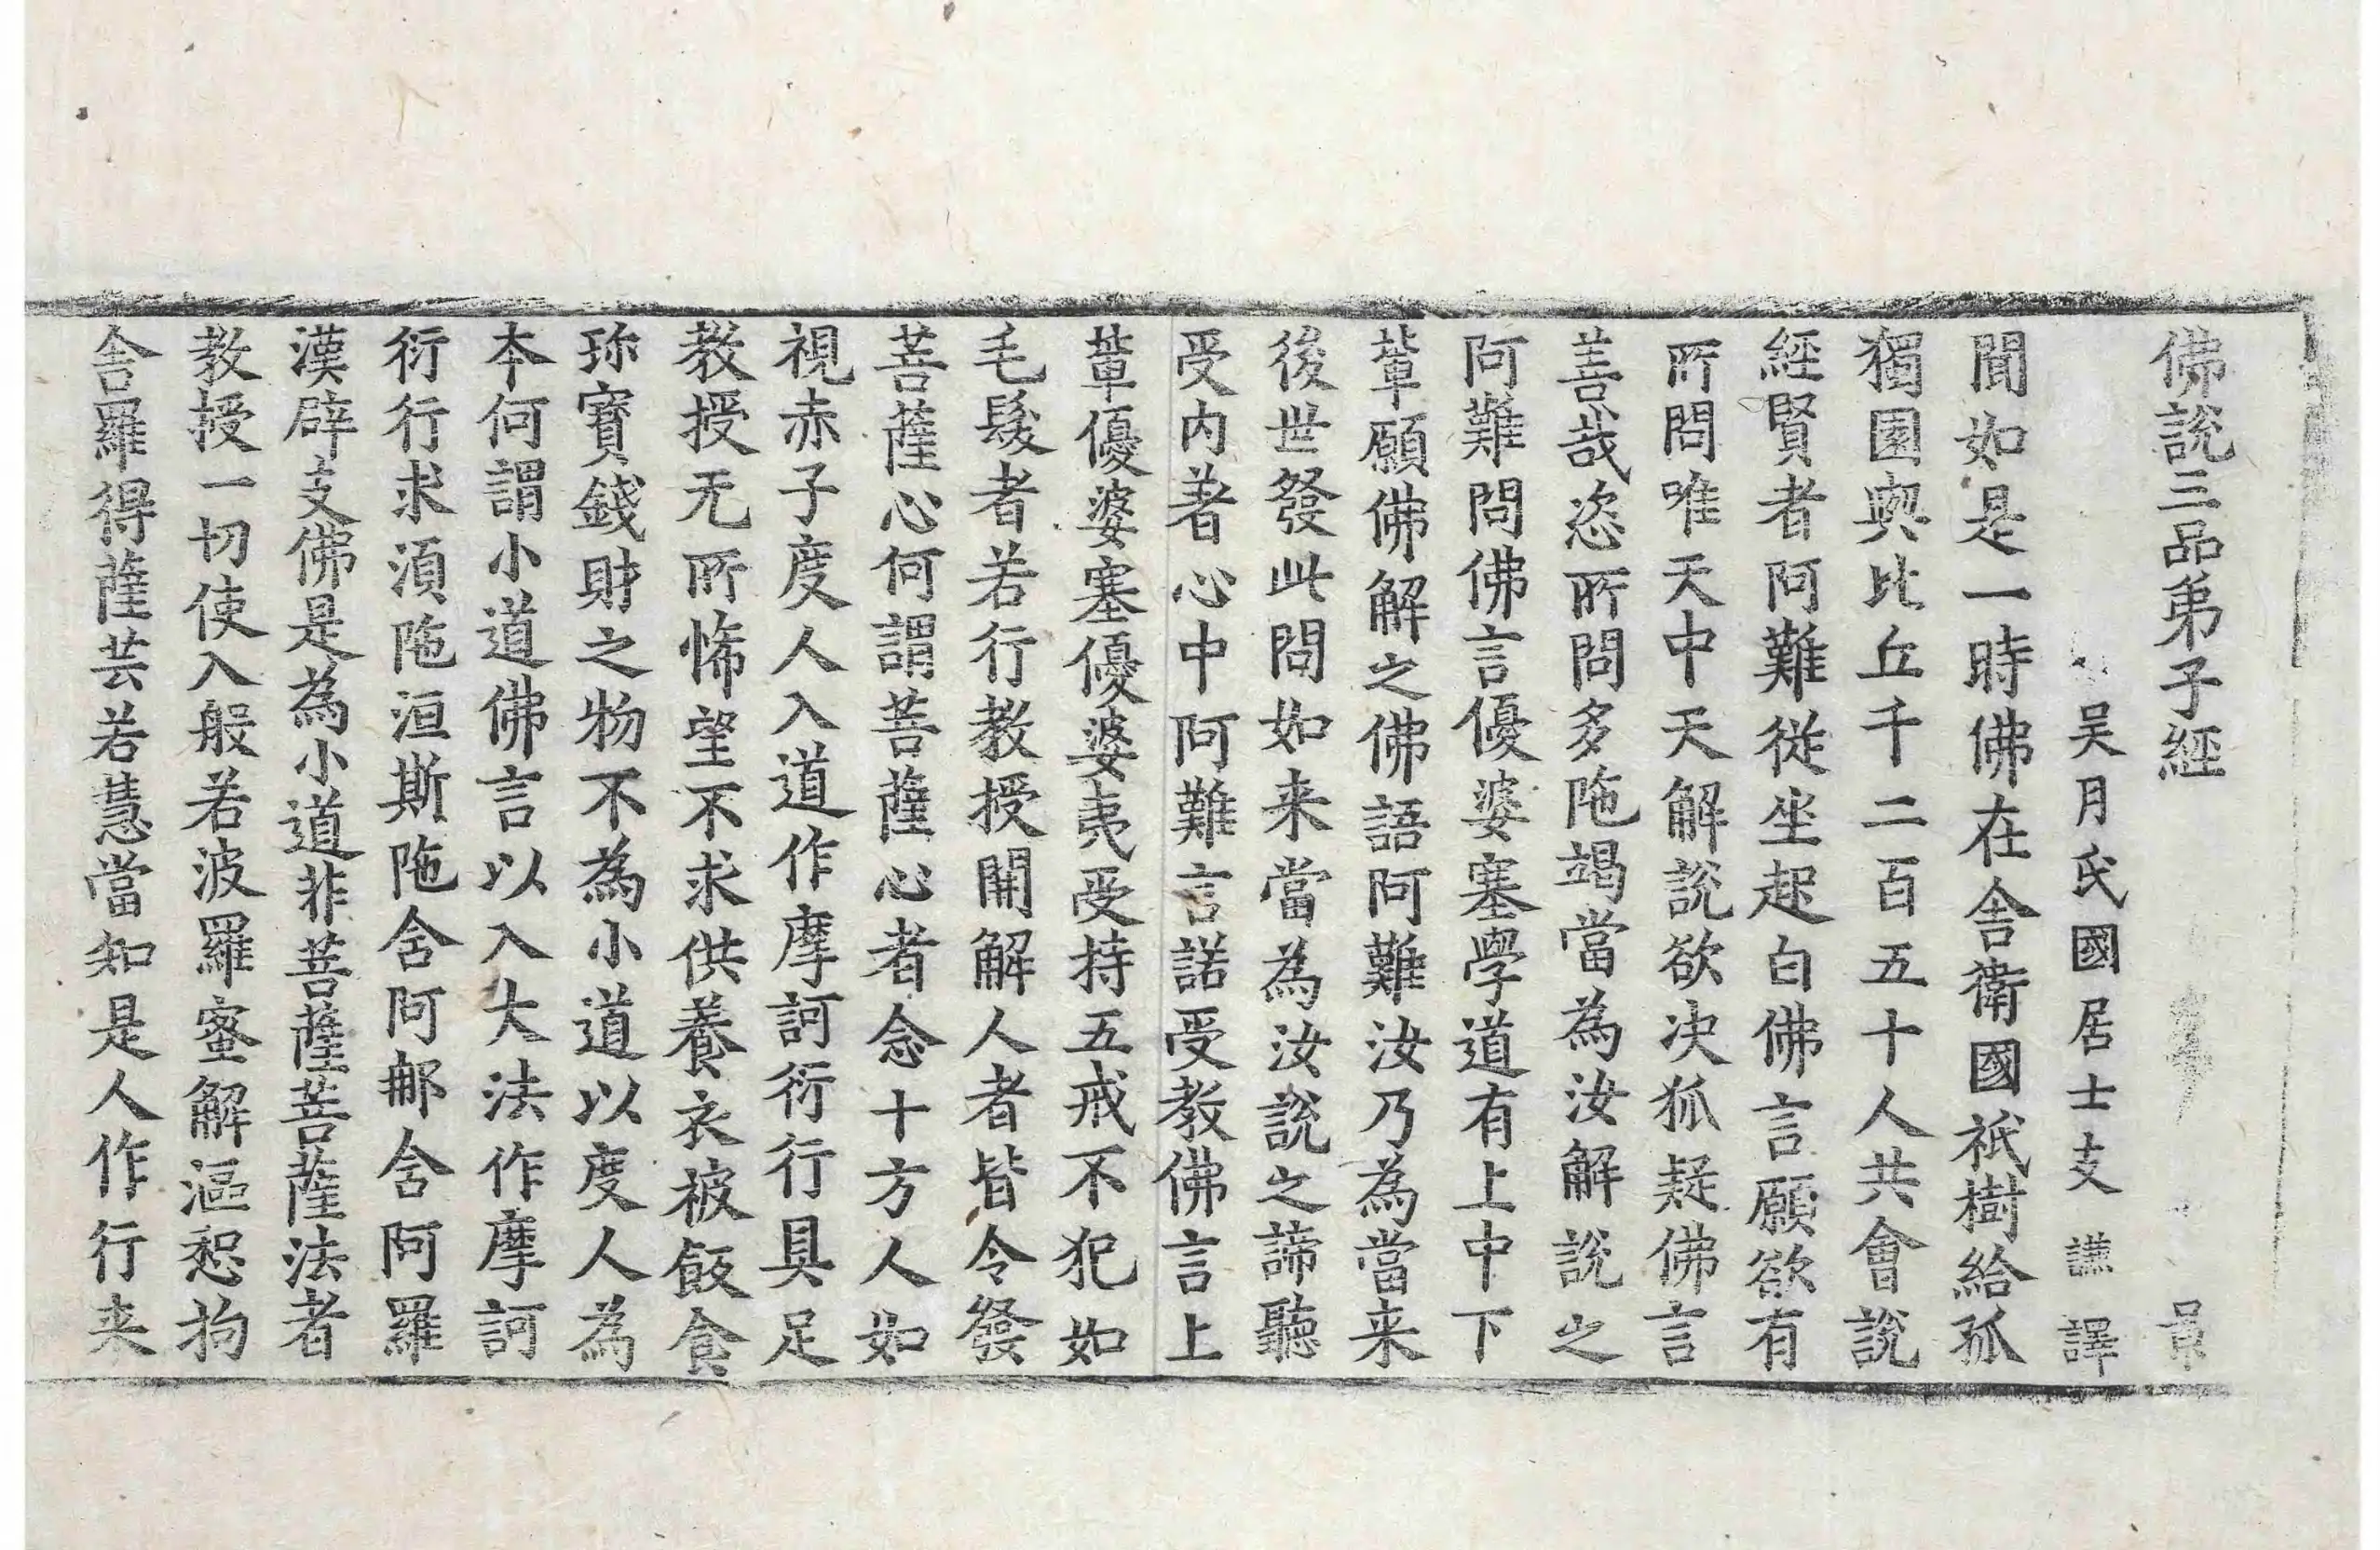 佛說三品弟子經
吴月氏國居士支謙譯
聞如是一時佛在舎衛國祇樹給孤
獨園與比丘千二百五十人共會說
經賢者阿難從坐起白佛言願欲有
所問唯天中天解說欲决狐疑佛言
善哉恣所問多陁竭當為汝解說之
阿難問佛言優婆塞學道有上中下
軰願佛解之佛語阿難汝乃為當来
後世發此問如来當為汝說之諦聽
受内著心中阿難言諾受教佛言上
軰優婆塞優婆夷受持五戒不犯如
毛髮者若行教授開解人者皆令發
菩薩心何謂菩薩心者念十方人如
視赤子度人入道作摩訶衍行具足
教授无所悕望不求供養衣被飯食
珎寳錢財之物不為小道以度人為
本何謂小道佛言以入大法作摩訶
衍行求湏陁洹斯陁舍阿那舍阿羅
漢辟支佛是為小道非菩薩菩薩法者
教授一切使入般若波羅蜜解漚惒拘
舎羅得薩芸若慧當知是人作行来